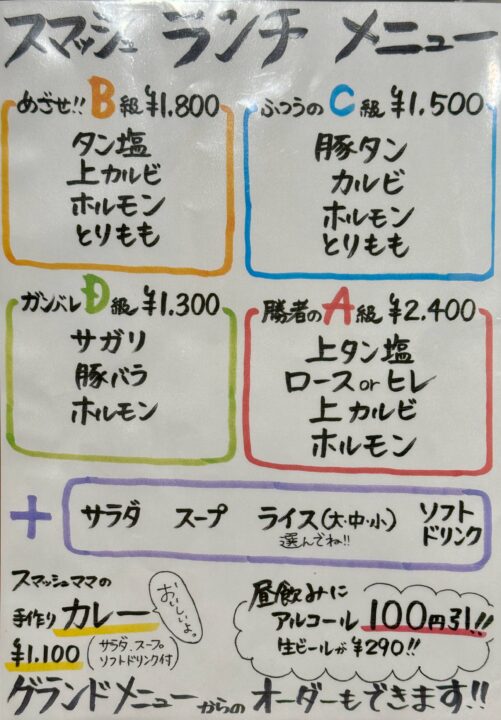 スマッシュ ランチ メニュー
めざせ!! B級 ¥1.800
タン塩
上カルビ
ホルモン
とりもも
ふつうの C級 ¥1.500
豚タン
カルビ
ホルモン
とりもも
ガンバレ D級 ¥1.300
サガリ
豚バラ
ホルモン
勝者の A級 ¥2.400
上タン塩
ロース or ヒレ
上カルビ
ホルモン
+ サラダ スープ ライス(大・中・小) ソフト
ドリンク
選んでね!!
スマッシュママの
手作り カレー
おいしいよ。
¥1.100 (サラダ、スープ。
ソフトドリンク付)
昼飲みに
アルコール 100円引!!
生ビールが ¥290!!
グランドメニューからの オーダーもできます!!